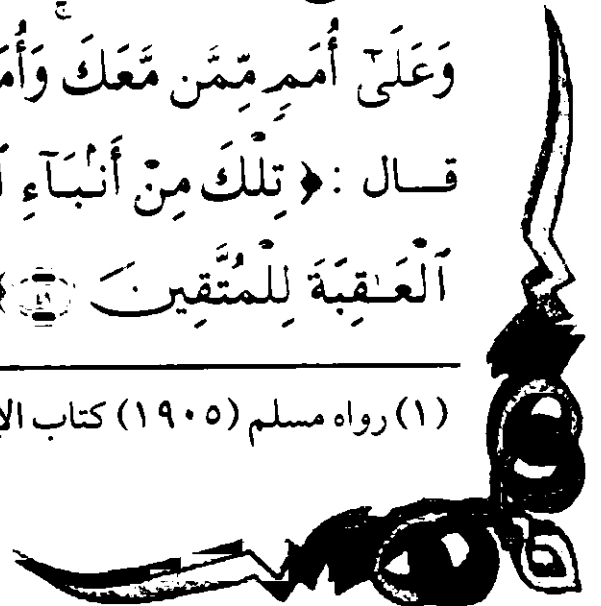 وَعَلَىٰٓ أُمَمٍ مِّمَّن مَّعَكَ ۚ
قال : ﴿ تِلْكَ مِنْ أَنۢبَآءِ
ٱلْعَـٰقِبَةَ لِلْمُتَّقِينَ ٤٩ ﴾
(١) رواه مسلم (١٩٠٥) كتاب